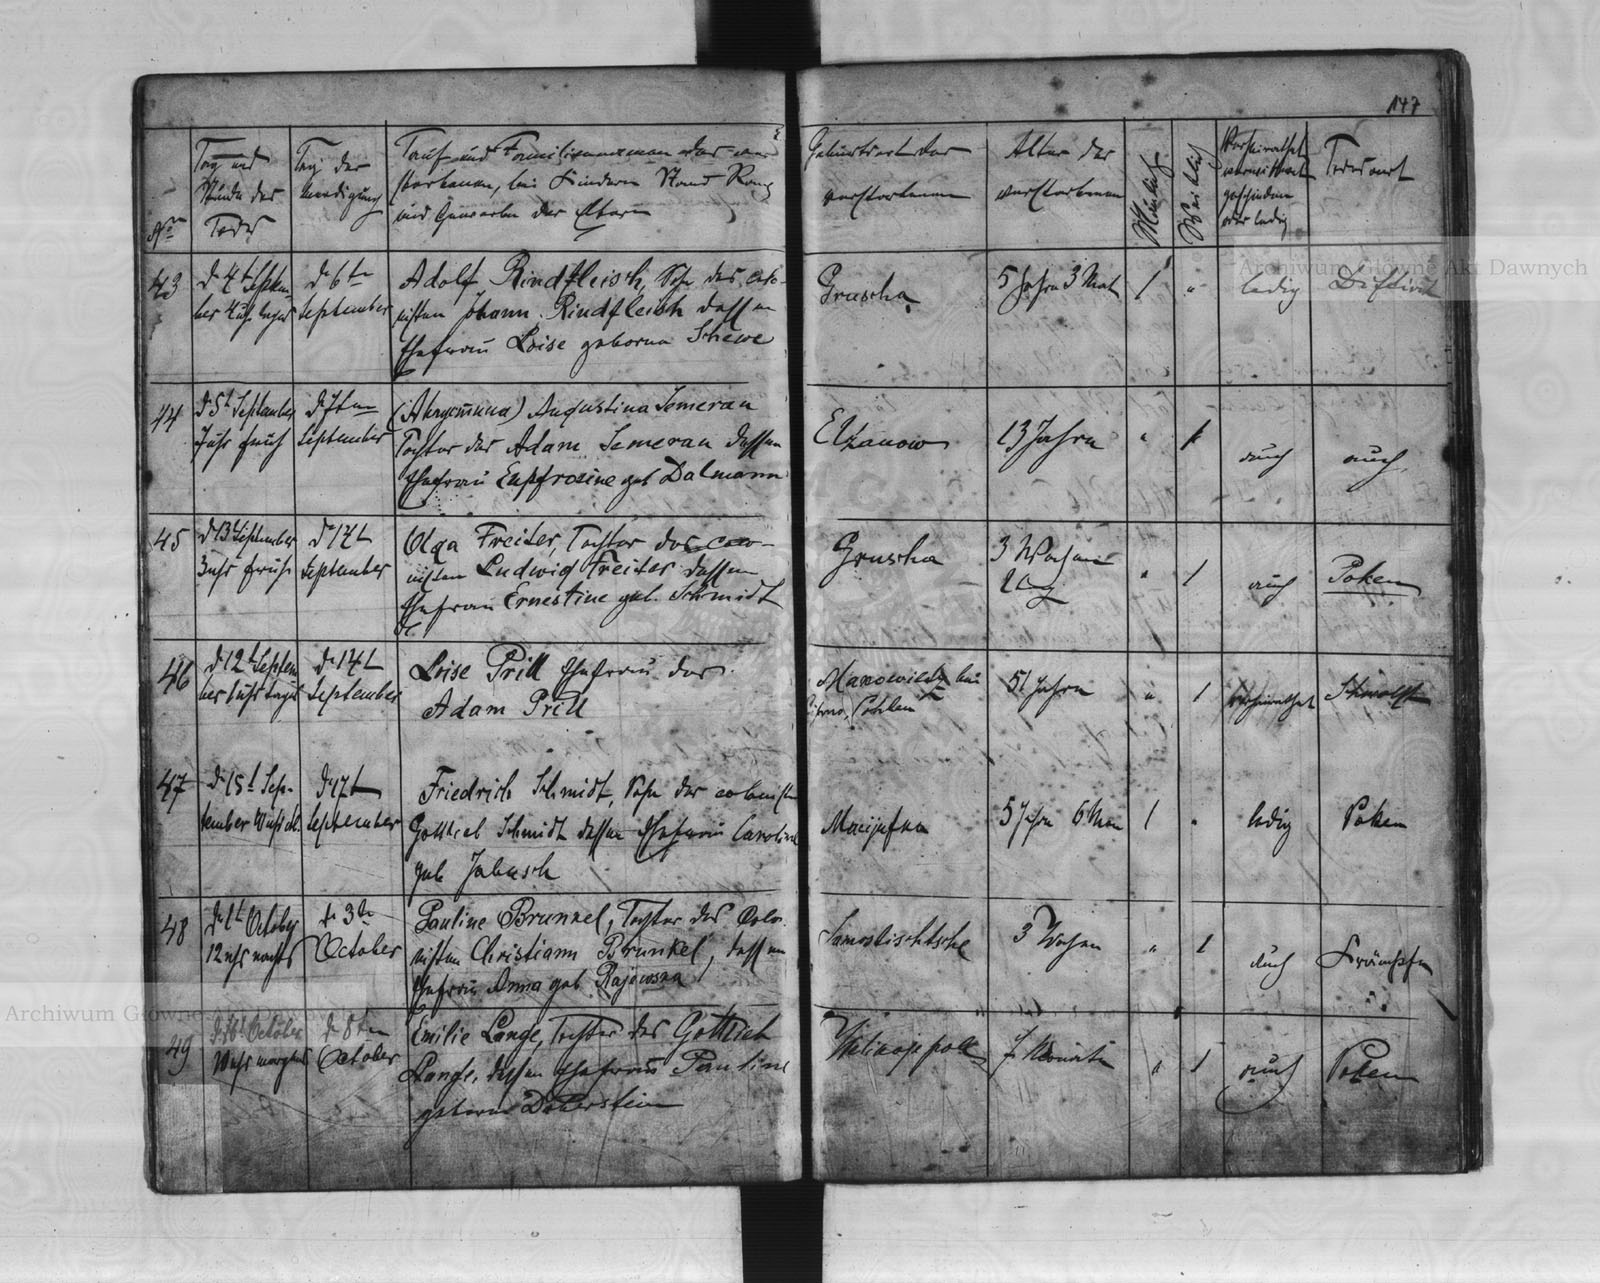 147
No
Tag und
Stunde des
Todes
Tag der
beerdigung
Tauf und Familiennamen des ver-
storbenen, bei Kindern Stand Rang
und Gewerbe der Eltern
Geburtsort der
verstorbenen
Alter der
verstorbenen
Mänlich
Weiblich
Verheirathet
verwittwet
geschieden
oder ledig
Todesart
43
d 4t Septem
ber 4 uhr tages
d 6te
September
Adolf Rindfleisch, Sohn des colo-
nisten Johann Rindfleisch dessen
Ehefrau Loise geborne Schewe
Gruscha
5 Jahre 3 Mnt
1
"
ledig
Difterit
44
d 5t September
7 uhr früh
d 7ten
September
(Августина) Augustina Semerau
Tochter des Adam Semerau dessen
Ehefrau Eupfrosine geb Dalmann
Elzanow
13 Jahre
"
1
auch
auch
45
d 13 September
3 uhr früh
d 17t
September
Olga Freiter, Tochter des colo-
nisten Ludwig Freiter dessen
Ehefrau Ernestine geb. Schmidt
Gruscha
3 Wochen
"
1
auch
Poken
46
d 12t Septem
ber 1 uhr tages
d 14t
September
Loise Prill Ehefrau des
Adam Prill
bei
Pohlen
51 Jahre
"
1
verheirathet
47
d 15t Sep-
tember
d 17t
September
Friedrich Schmidt, Sohn des colonisten
Gottlieb Schmidt dessen Ehefrau Caroline
geb Jabusch
5 Jahre 6 Mon
1
"
ledig
Poken
48
d 1t October
12 uhr nachts
d 3te
October
Pauline Brunkel, Tochter des Colo-
nisten Christiann Brunkel, dessen
Ehefrau Anna geb Rajewska
3 Wochen
"
1
auch
Krämpfe
49
October
uhr morgens
d 8ten
October
Emilie Lange, Tochter des Gottlieb
Lange, dessen Ehefrau Pauline
geborne Doberstein
7 Monate
"
1
auch
Poken
Archiwum Główne Akt Dawnych
Archiwum Główne Akt Dawnych